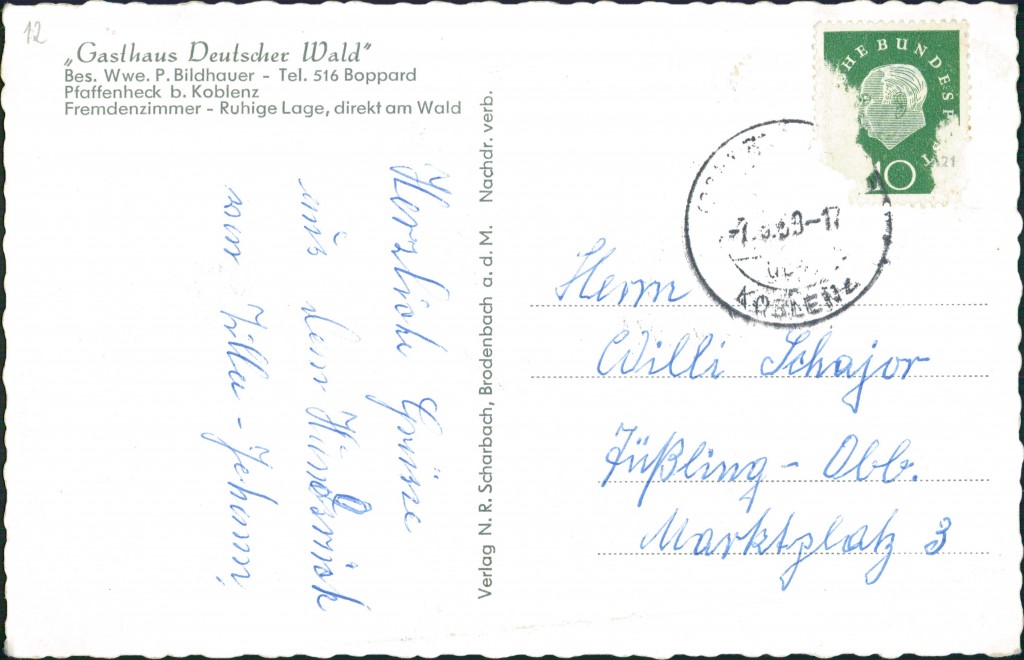 12
„Gasthaus Deutscher Wald"
Bes. Wwe. P. Bildhauer - Tel. 516 Boppard
Pfaffenheck b. Koblenz
Fremdenzimmer - Ruhige Lage, direkt am Wald
Herzliche Grüsse
aus dem Hunsrück
von Willa - Johann
Verlag N. R. Scharbach, Brodenbach a. d. M. Nachdr. verb.
HE BUNDESP
10
A21
-17
KOBLENZ
Herrn
Willi Schajor
Tüßling - Obb.
Marktplatz 3